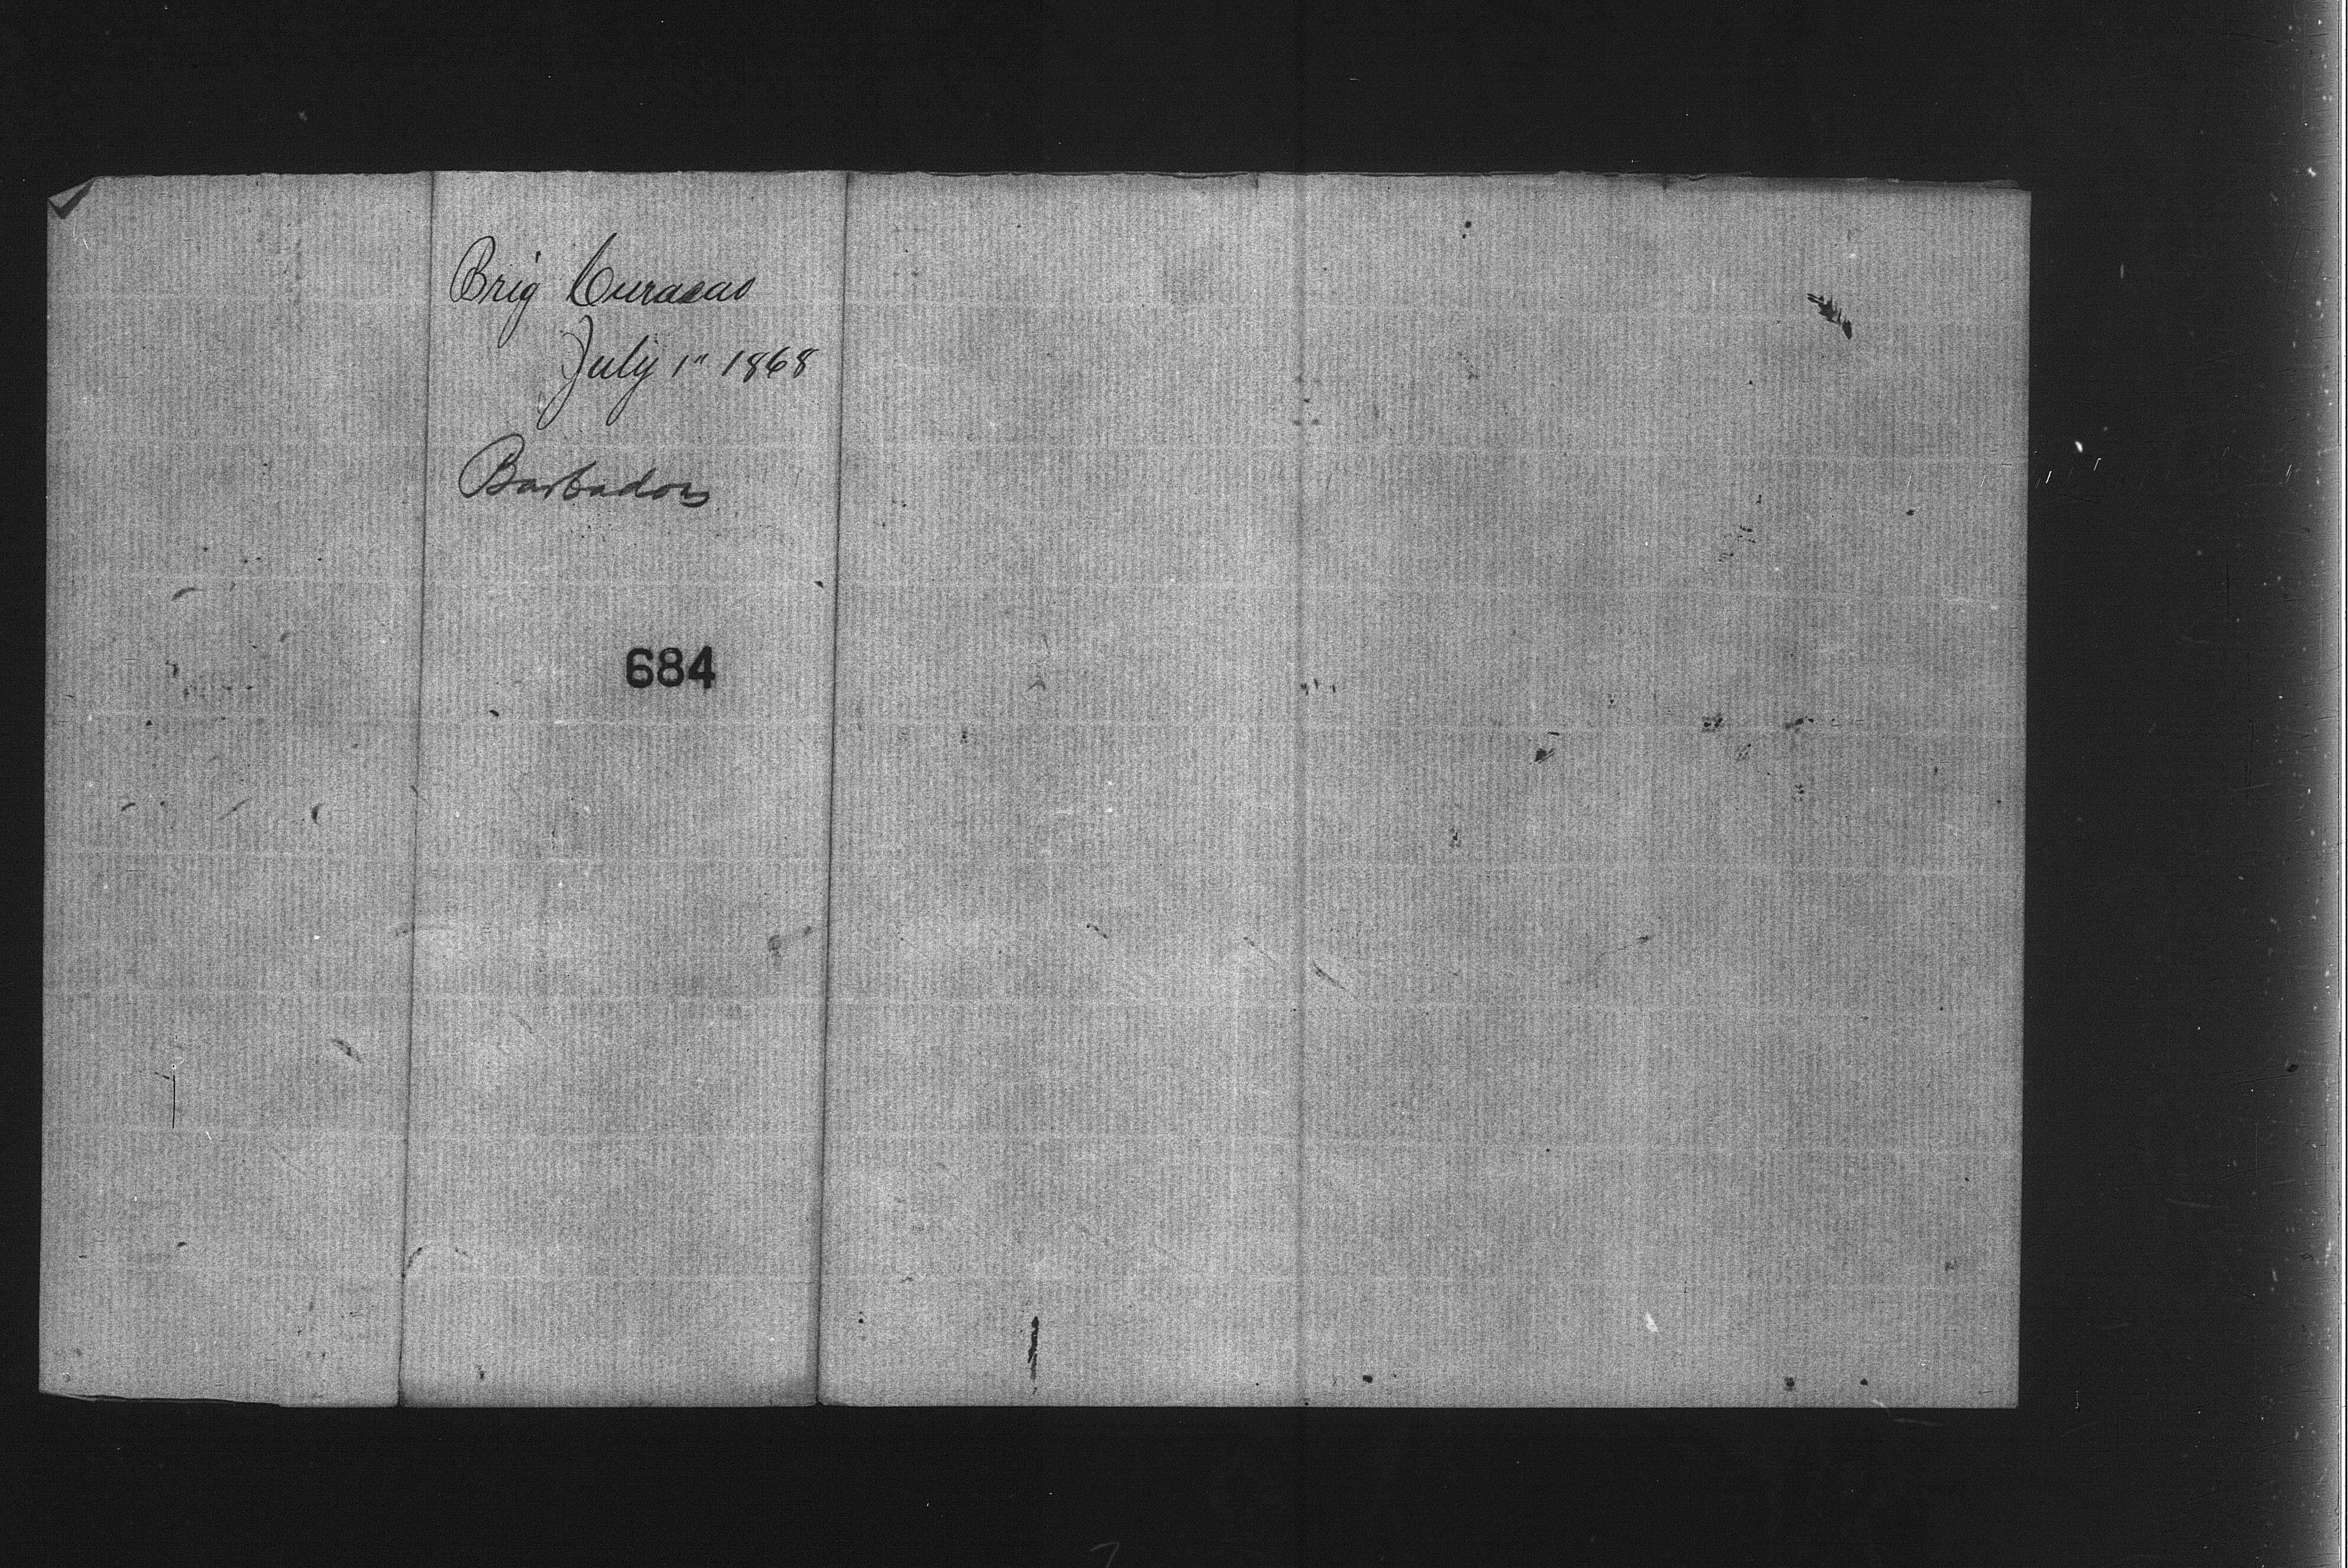 Brig Curacao
July 1" 1868
Barbados
684